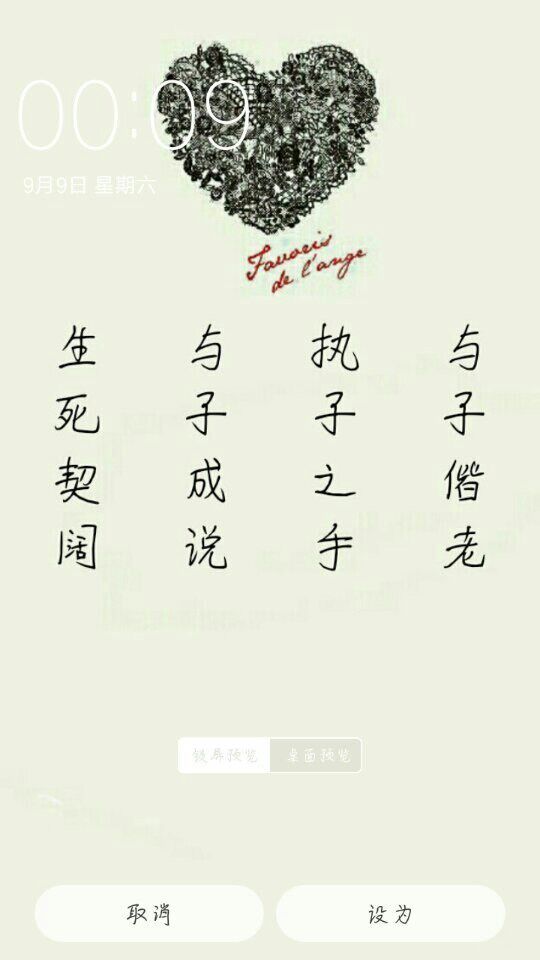 00:09
9月9日 星期六
Favoris
de l'ange
生死契阔
与子成说
执子之手
与子偕老
锁屏预览 桌面预览
取消 设为